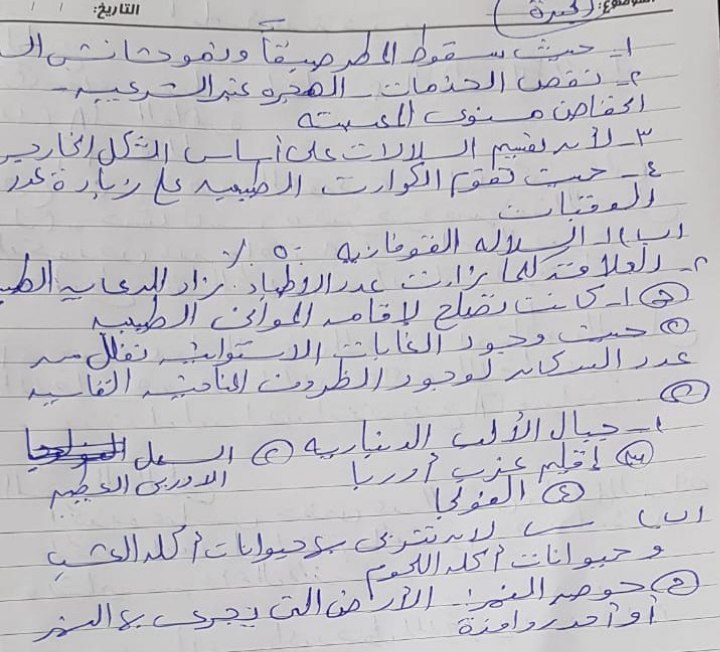 الموضوع: الجيزة التاريخ: / /
١- حيث سقوط المطر صيفاً ونمو حشائش الـ
٢- نقص الخدمات - الهجره غير الشرعيه -
انخفاض مستوى المعيشه
٣- لأنه تقسيم السلالات على أساس الشكل الخارجي
٤- حيث تقوم الكوارث الطبيعيه على زيادة عدد
الوفيات
(ب) ١- السلاله القوقازيه ٥٠ ٪
٢- العلاقة كلما زادت عدد الأطباء زاد الرعايه الطبيه
١- كانت تصلح لإقامه الموانى الطبيعيه
٢ حيث وجود الغابات الاستوائيه تقلل من
عدد السكان لوجود الظروف المناخيه القاسيه
١- جبال الألب الدينارية ٢ السهل
الاوربى العظيم
٣ إقليم غرب أوربا
٤ الفولجا
(ب) لانه تتربى به حيوانات أكله العشب
و حيوانات أكله اللحوم
حوض النهر: الأرض التى يجرى بها النهر
أو أحد روافدة